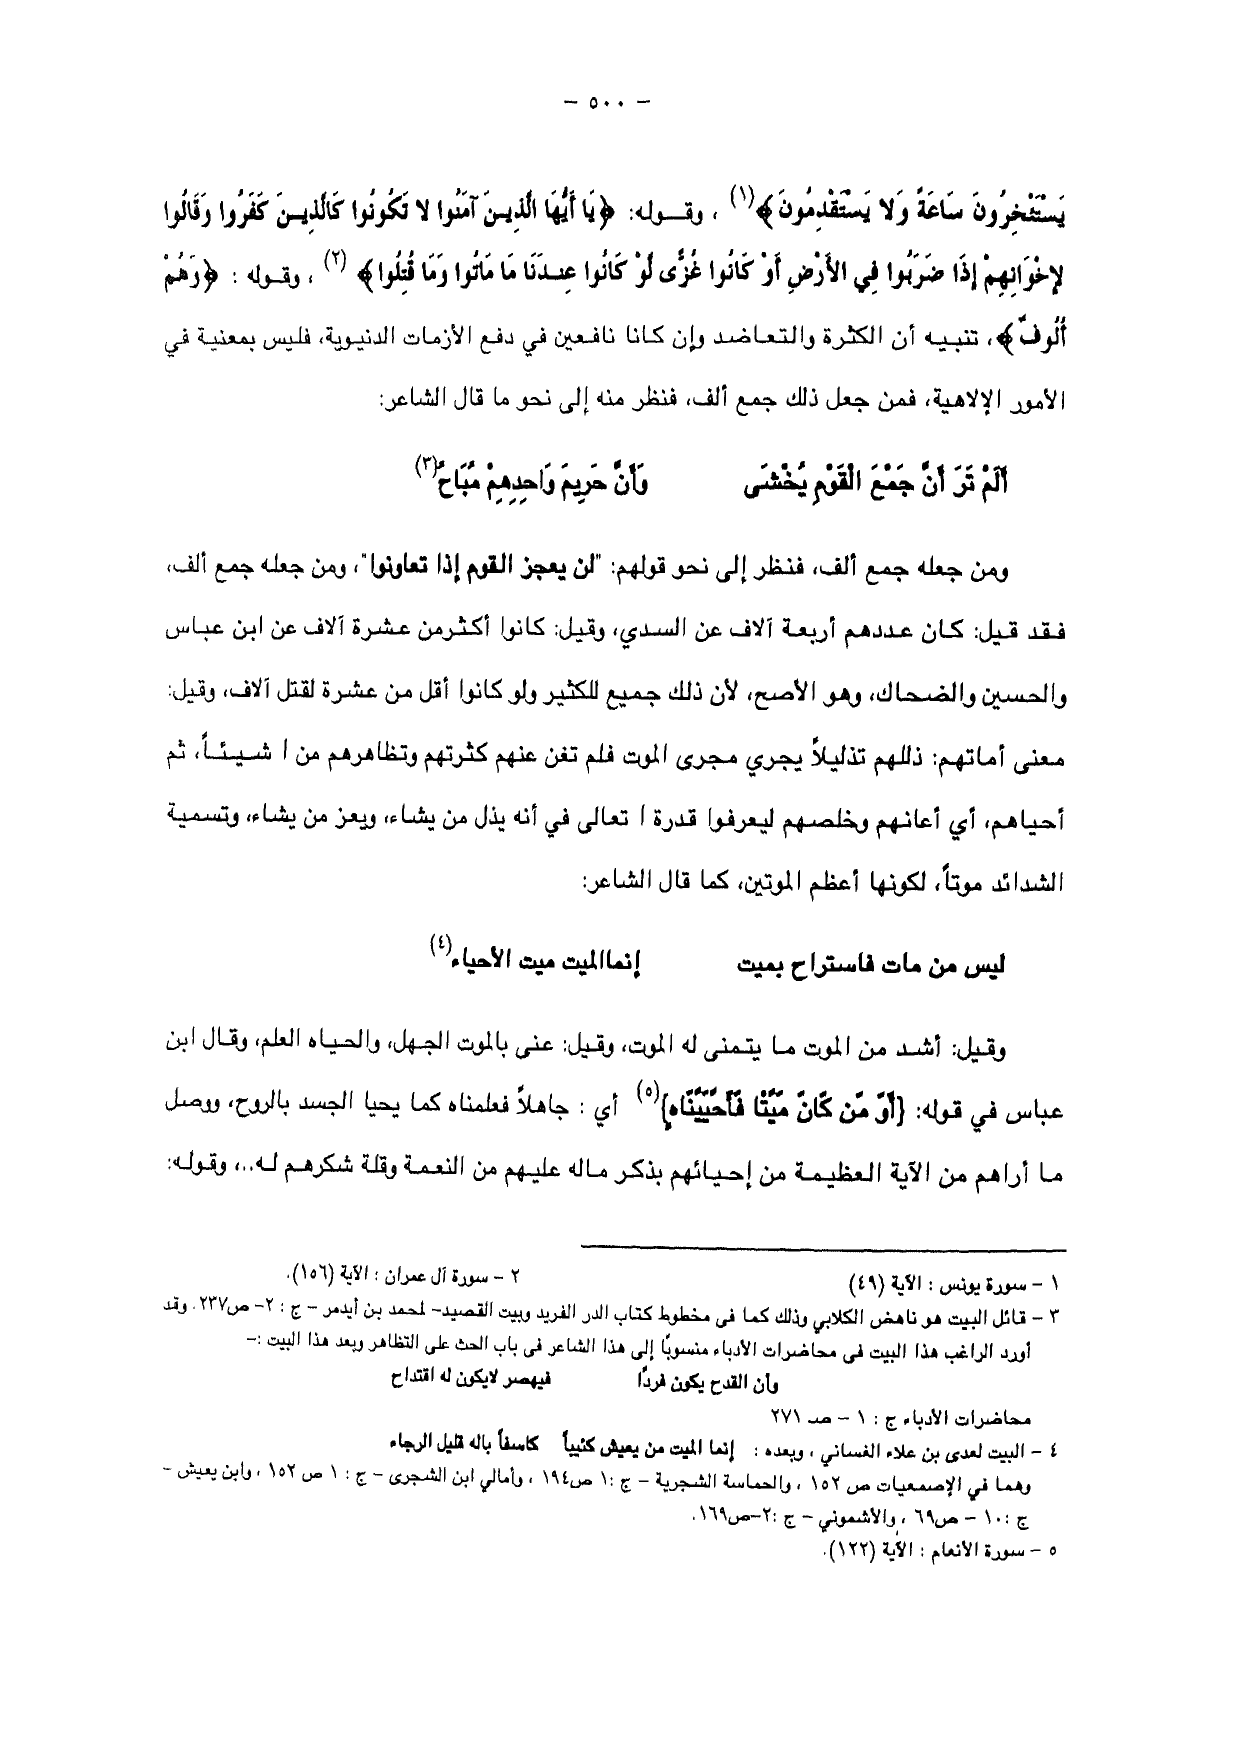 – ٥٠٠ –
يَسْتَئْخِرُونَ سَاعَةً وَلا يَسْتَقْدِمُونَ﴾(١) ، وقـــوله: ﴿يَا أَيُّهَا الَّذِينَ آمَنُوا لا تَكُونُوا كَالَّذِينَ كَفَرُوا وَقَالُوا
لإِخْوَانِهِمْ إِذَا ضَرَبُوا فِي الأَرْضِ أَوْ كَانُوا غُزًّى لَوْ كَانُوا عِنْدَنَا مَا مَاتُوا وَمَا قُتِلُوا﴾ (٢) ، وقوله : ﴿وَهُمْ
أُلُوفٌ﴾، تنبيه أن الكثرة والتعاضد وإن كانا نافعين في دفع الأزمات الدنيوية، فليس بمعنية في
الأمور الإلاهية، فمن جعل ذلك جمع ألف، فنظر منه إلى نحو ما قال الشاعر:
أَلَمْ تَرَ أَنَّ جَمْعَ الْقَوْمِ يُخْشَى وَأَنَّ حَرِيمَ وَاحِدِهِمْ مُبَاحُ(٣)
ومن جعله جمع ألف، فنظر إلى نحو قولهم: "لن يعجز القوم إذا تعاونوا"، ومن جعله جمع ألف،
فقد قيل: كان عددهم أربعة آلاف عن السدي، وقيل: كانوا أكثرمن عشرة آلاف عن ابن عباس
والحسين والضحاك، وهو الأصح، لأن ذلك جميع للكثير ولو كانوا أقل من عشرة لقتل آلاف، وقيل:
معنى أماتهم: ذللهم تذليلاً يجري مجرى الموت فلم تغن عنهم كثرتهم وتظاهرهم من ا شيئاً، ثم
أحياهم، أي أعانهم وخلصهم ليعرفوا قدرة ا تعالى في أنه يذل من يشاء، ويعز من يشاء، وتسمية
الشدائد موتاً، لكونها أعظم الموتين، كما قال الشاعر:
ليس من مات فاستراح بميت إنماالميت ميت الأحياء(٤)
وقيل: أشد من الموت ما يتمنى له الموت، وقيل: عني بالموت الجهل، والحياه العلم، وقال ابن
عباس في قوله: {أَوَ مَن كَانَ مَيْتًا فَأَحْيَيْنَاهُ}(٥) أي : جاهلاً فعلمناه كما يحيا الجسد بالروح، ووصل
ما أراهم من الآية العظيمة من إحيائهم بذكر ماله عليهم من النعمة وقلة شكرهم له..، وقوله:
١ – سورة يونس : الآية (٤٩) ٢ – سورة آل عمران : الآية (١٥٦).
٣ – قائل البيت هو ناهض الكلابي وذلك كما فى مخطوط كتاب الدر الفريد وبيت القصيد– لمحمد بن أيدمر – ج : ٢– ص٢٣٧. وقد
أورد الراغب هذا البيت فى محاضرات الأدباء منسوبًا إلى هذا الشاعر فى باب الحث على التظاهر وبعد هذا البيت :–
وأن القدح يكون فردًا فيهصر لايكون له اقتداح
محاضرات الأدباء ج : ١ – صـ ٢٧١
٤ – البيت لعدى بن علاء الغساني ، وبعده : إنما الميت من يعيش كئيباً كاسفاً باله قليل الرجاء
وهما في الإصمعيات ص ١٥٢ ، والحماسة الشجرية – ج :١ ص١٩٤ ، وأمالي ابن الشجرى – ج : ١ ص ١٥٢ ، وأبن يعيش –
ج : ١٠ – ص٦٩ ، والأشموني – ج :٢–ص١٦٩.
٥ – سورة الأنعام : الآية (١٢٢).